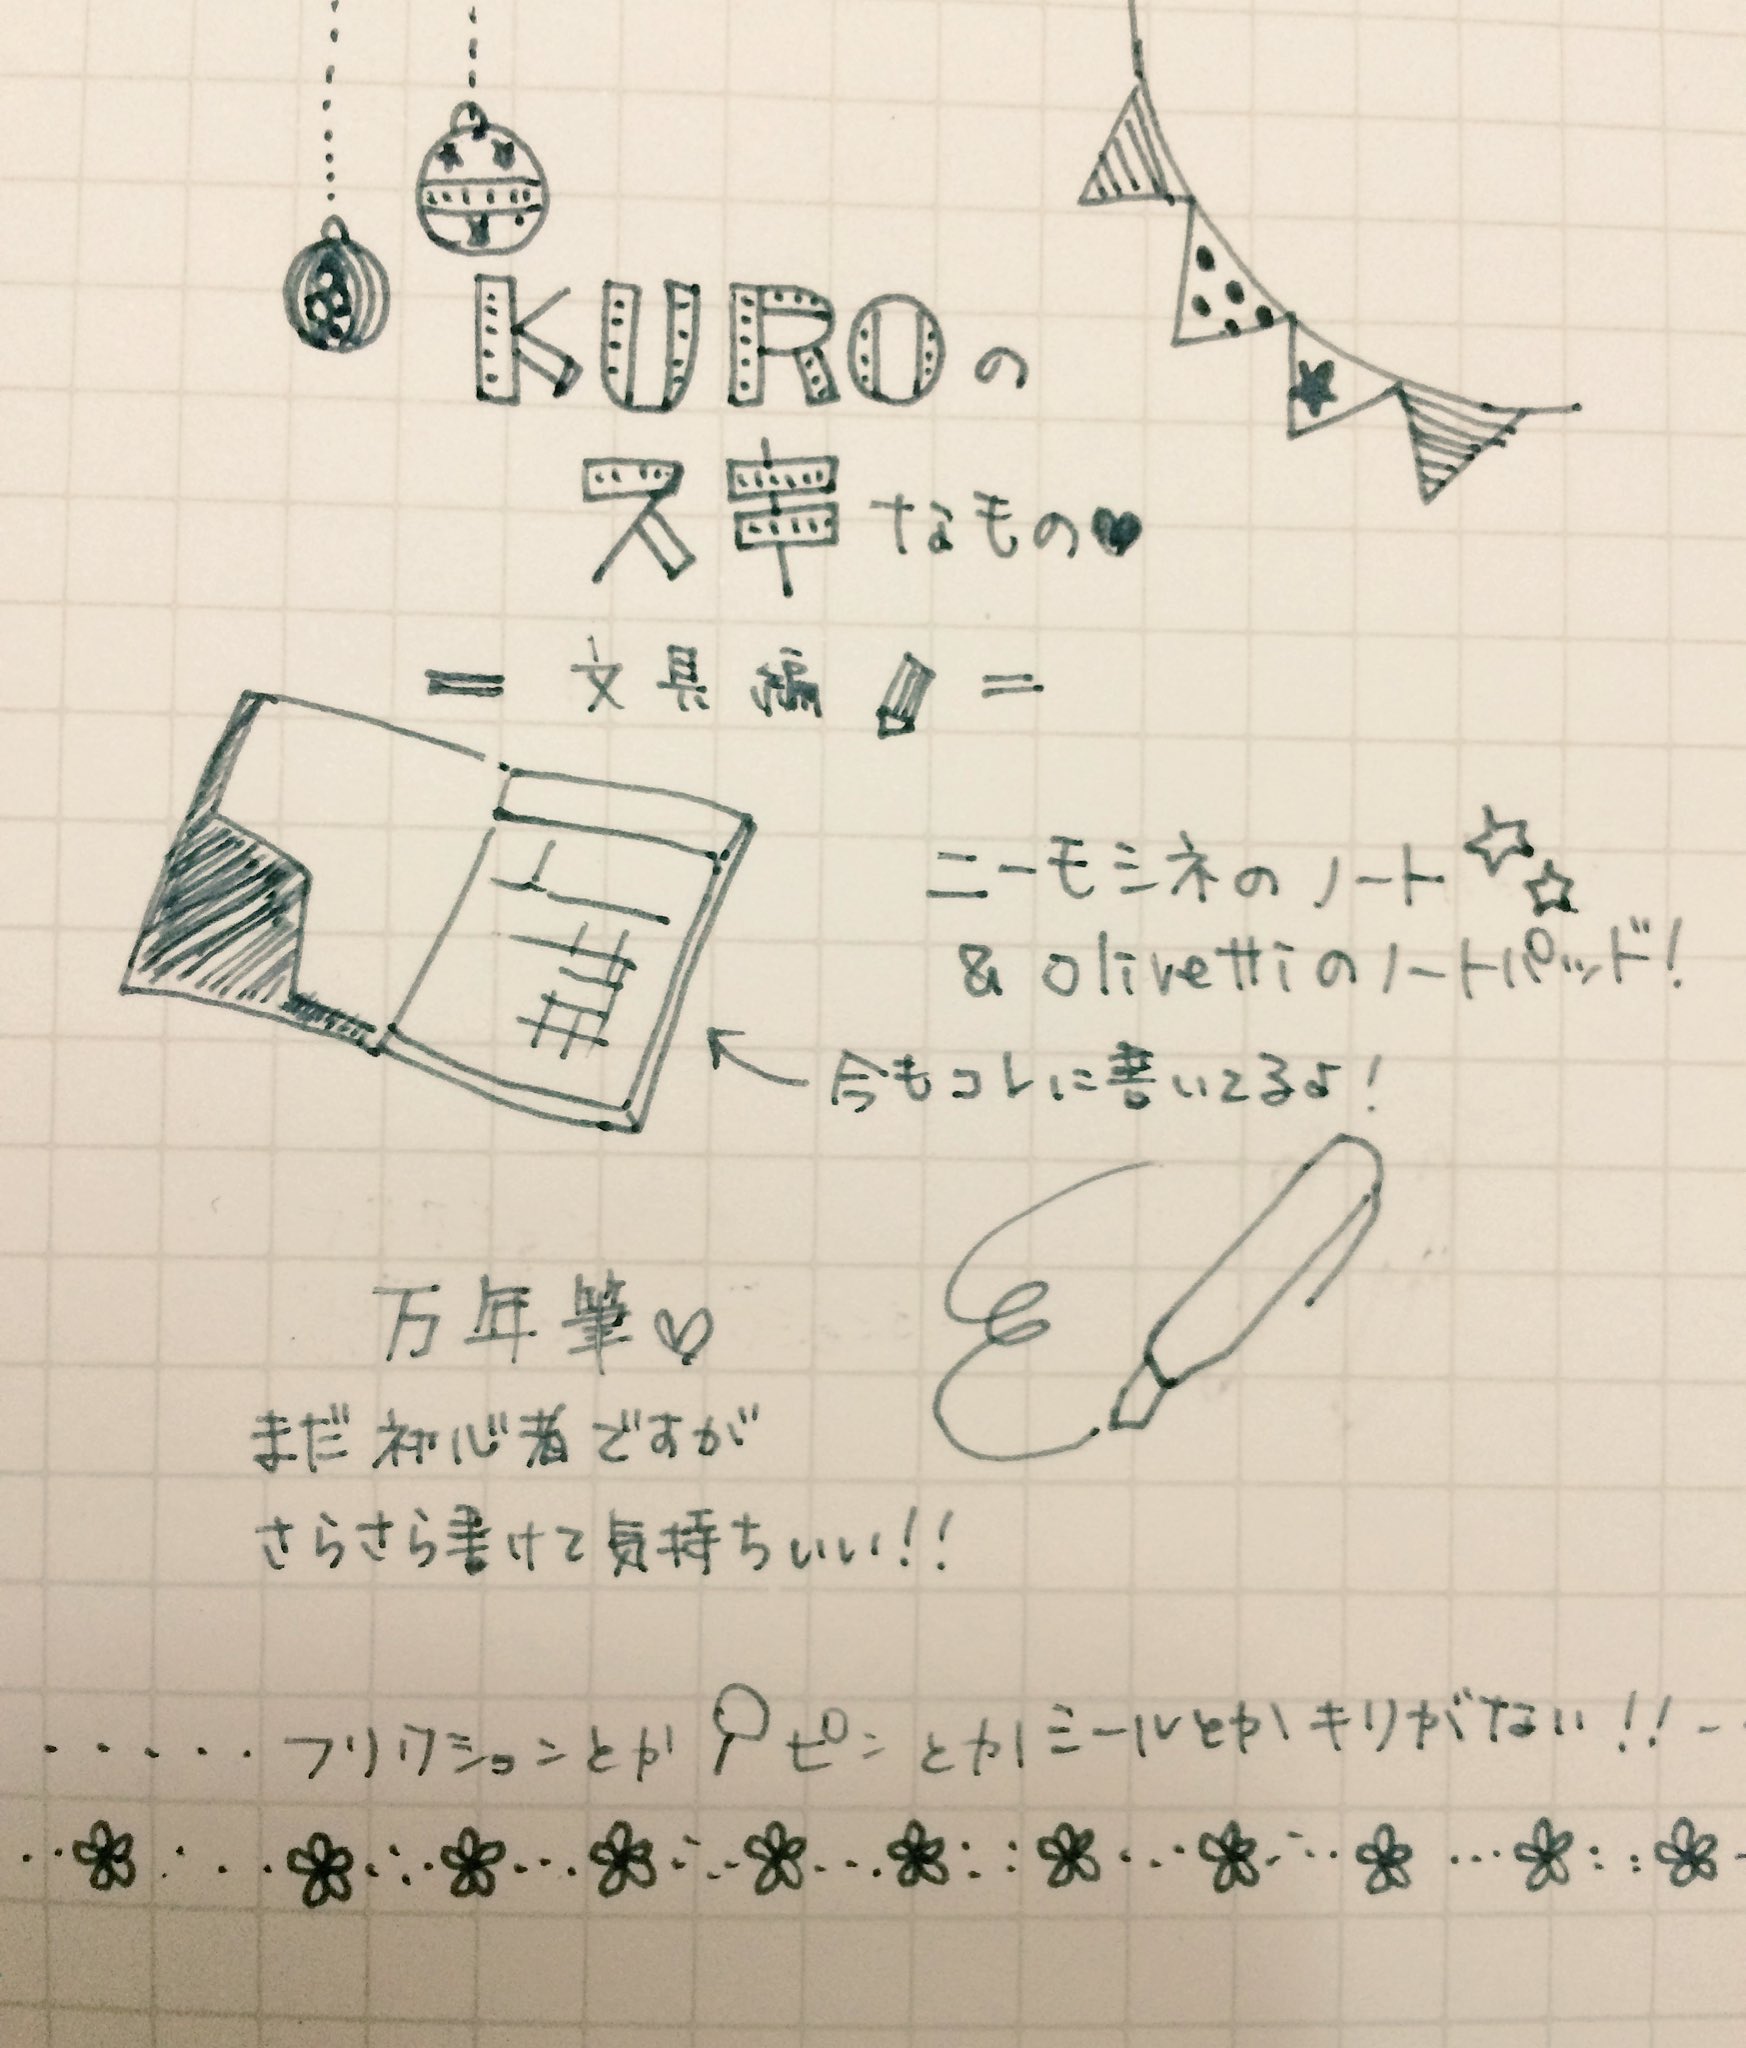 KUROの
スキなもの♥
= 文具編 =
ニーモシネのノート☆☆
& olivettiのノートパッド!
← 今もコレに書いてるよ!
万年筆♡
まだ初心者ですが
さらさら書けて気持ちいい!!
・・・・・フリクションとか ピンとか ミールとか キリがない!!